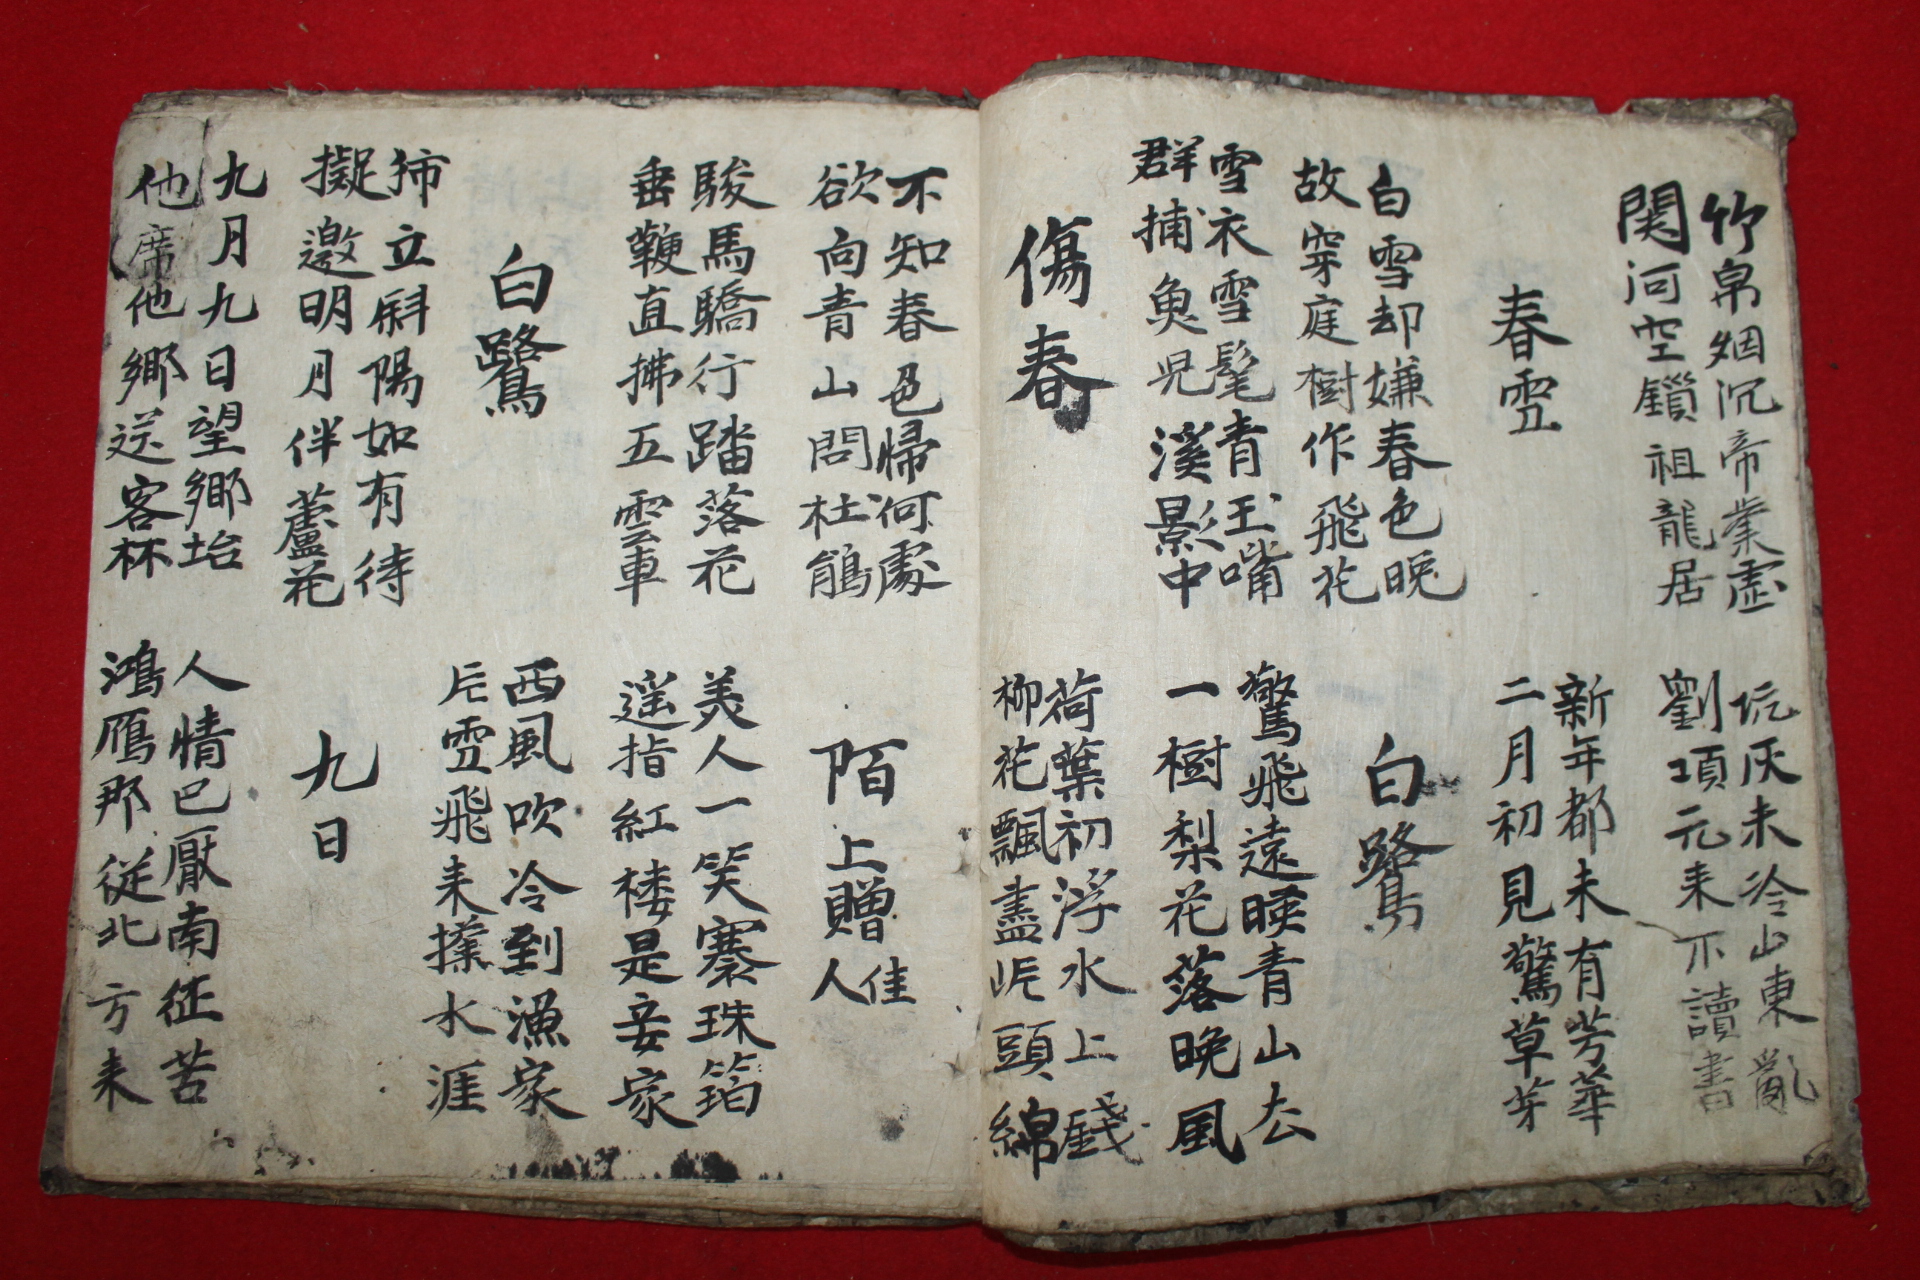 竹帛烟沉帝業虛
関河空鎻祖龍居
坑灰未冷山東亂
劉項元来不讀書
春雪
新年都未有芳華
二月初見驚草芽
白雪却嫌春色晚
故穿庭樹作飛花
白鷺
雪衣雪髦青玉嘴
群捕魚児溪影中
驚飛遠暎青山去
一樹梨花落晚風
傷春
荷葉初浮水上錢
柳花飄盡岸頭綿
不知春色帰何處
欲向青山問杜鵑
陌上贈佳人
駿馬驕行踏落花
垂鞭直拂五雲車
美人一笑寨珠箔
遥指紅楼是妾家
白鷺
西風吹冷到漁家
片雪飛来撲水涯
佇立斜陽如有待
擬邀明月伴蘆花
九日
九月九日望鄉坮
他席他鄉送客杯
人情已厭南征苦
鴻雁那従北方来